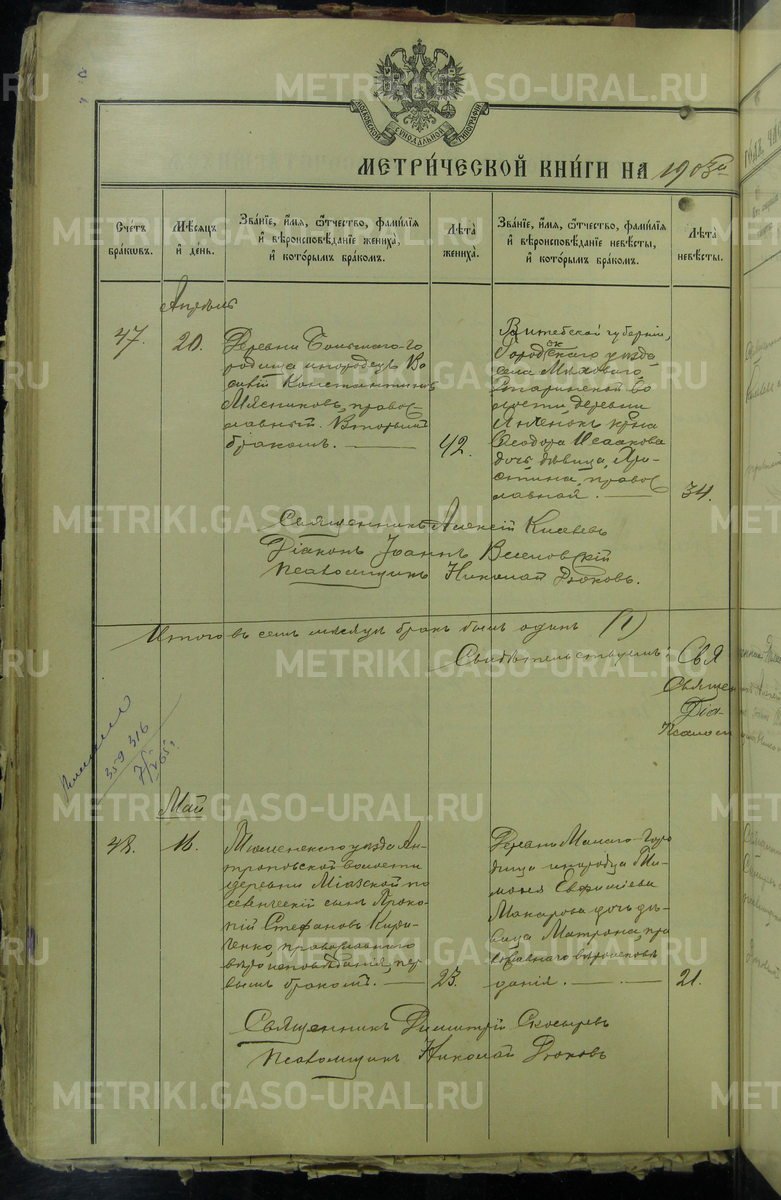 МЕТРИ́ЧЕСКОЙ КНИ́ГИ НА 1903й
Счетъ бракѡвъ.
Мѣсѧцъ и день.
Зва́нїе, и́мѧ, ѻ҆́тчество, фами́лїѧ и҆ вѣроисповѣ́данїе жениха̀, и҆ кото́рымъ бра́комъ.
Лѣта̀ жениха̀.
Зва́нїе, и́мѧ, ѻ҆́тчество, фами́лїѧ и҆ вѣроисповѣ́данїе невѣ́сты, и҆ кото́рымъ бра́комъ.
Лѣта̀ невѣ́сты.
Апрѣль
47.
20.
Деревни Большаго Го-
родища инородецъ Ва
силій Константиновъ
Мясниковъ, правос
лавный. Вторымъ
бракомъ.
42.
Витебской губерніи,
Городокскаго уѣзда
села Мѣховаго,
волости, деревни
кр-на
Ѳеодора Исаакова
дочь дѣвица,
правос
лавная.
34.
Священникъ Алексій
Діаконъ Іоаннъ Веселовскій
Псаломщикъ Николай Дюковъ.
Итого въ семъ мѣсяцѣ бракъ былъ одинъ (1)
Свидѣтельствуемъ: Свя
Священ
Діа-
Псалом
359 316
Май
48.
16.
Тюменскаго уѣзда Ан-
троповской волости
деревни Міазской по
селенческій сынъ Проко
пій Стефановъ Кири-
ченко, православнаго
вѣроисповѣданія, пер
вымъ бракомъ.
23.
Деревни Малаго Горо
дища инородца Ти-
моѳея Евфиміева
Макарова дочь дѣ-
вица Матрона, пра
вославнаго вѣроисповѣ
данія.
21.
Священникъ Димитрій Скосыревъ
Псаломщикъ Николай Дюковъ
METRIKI.GASO-URAL.RU